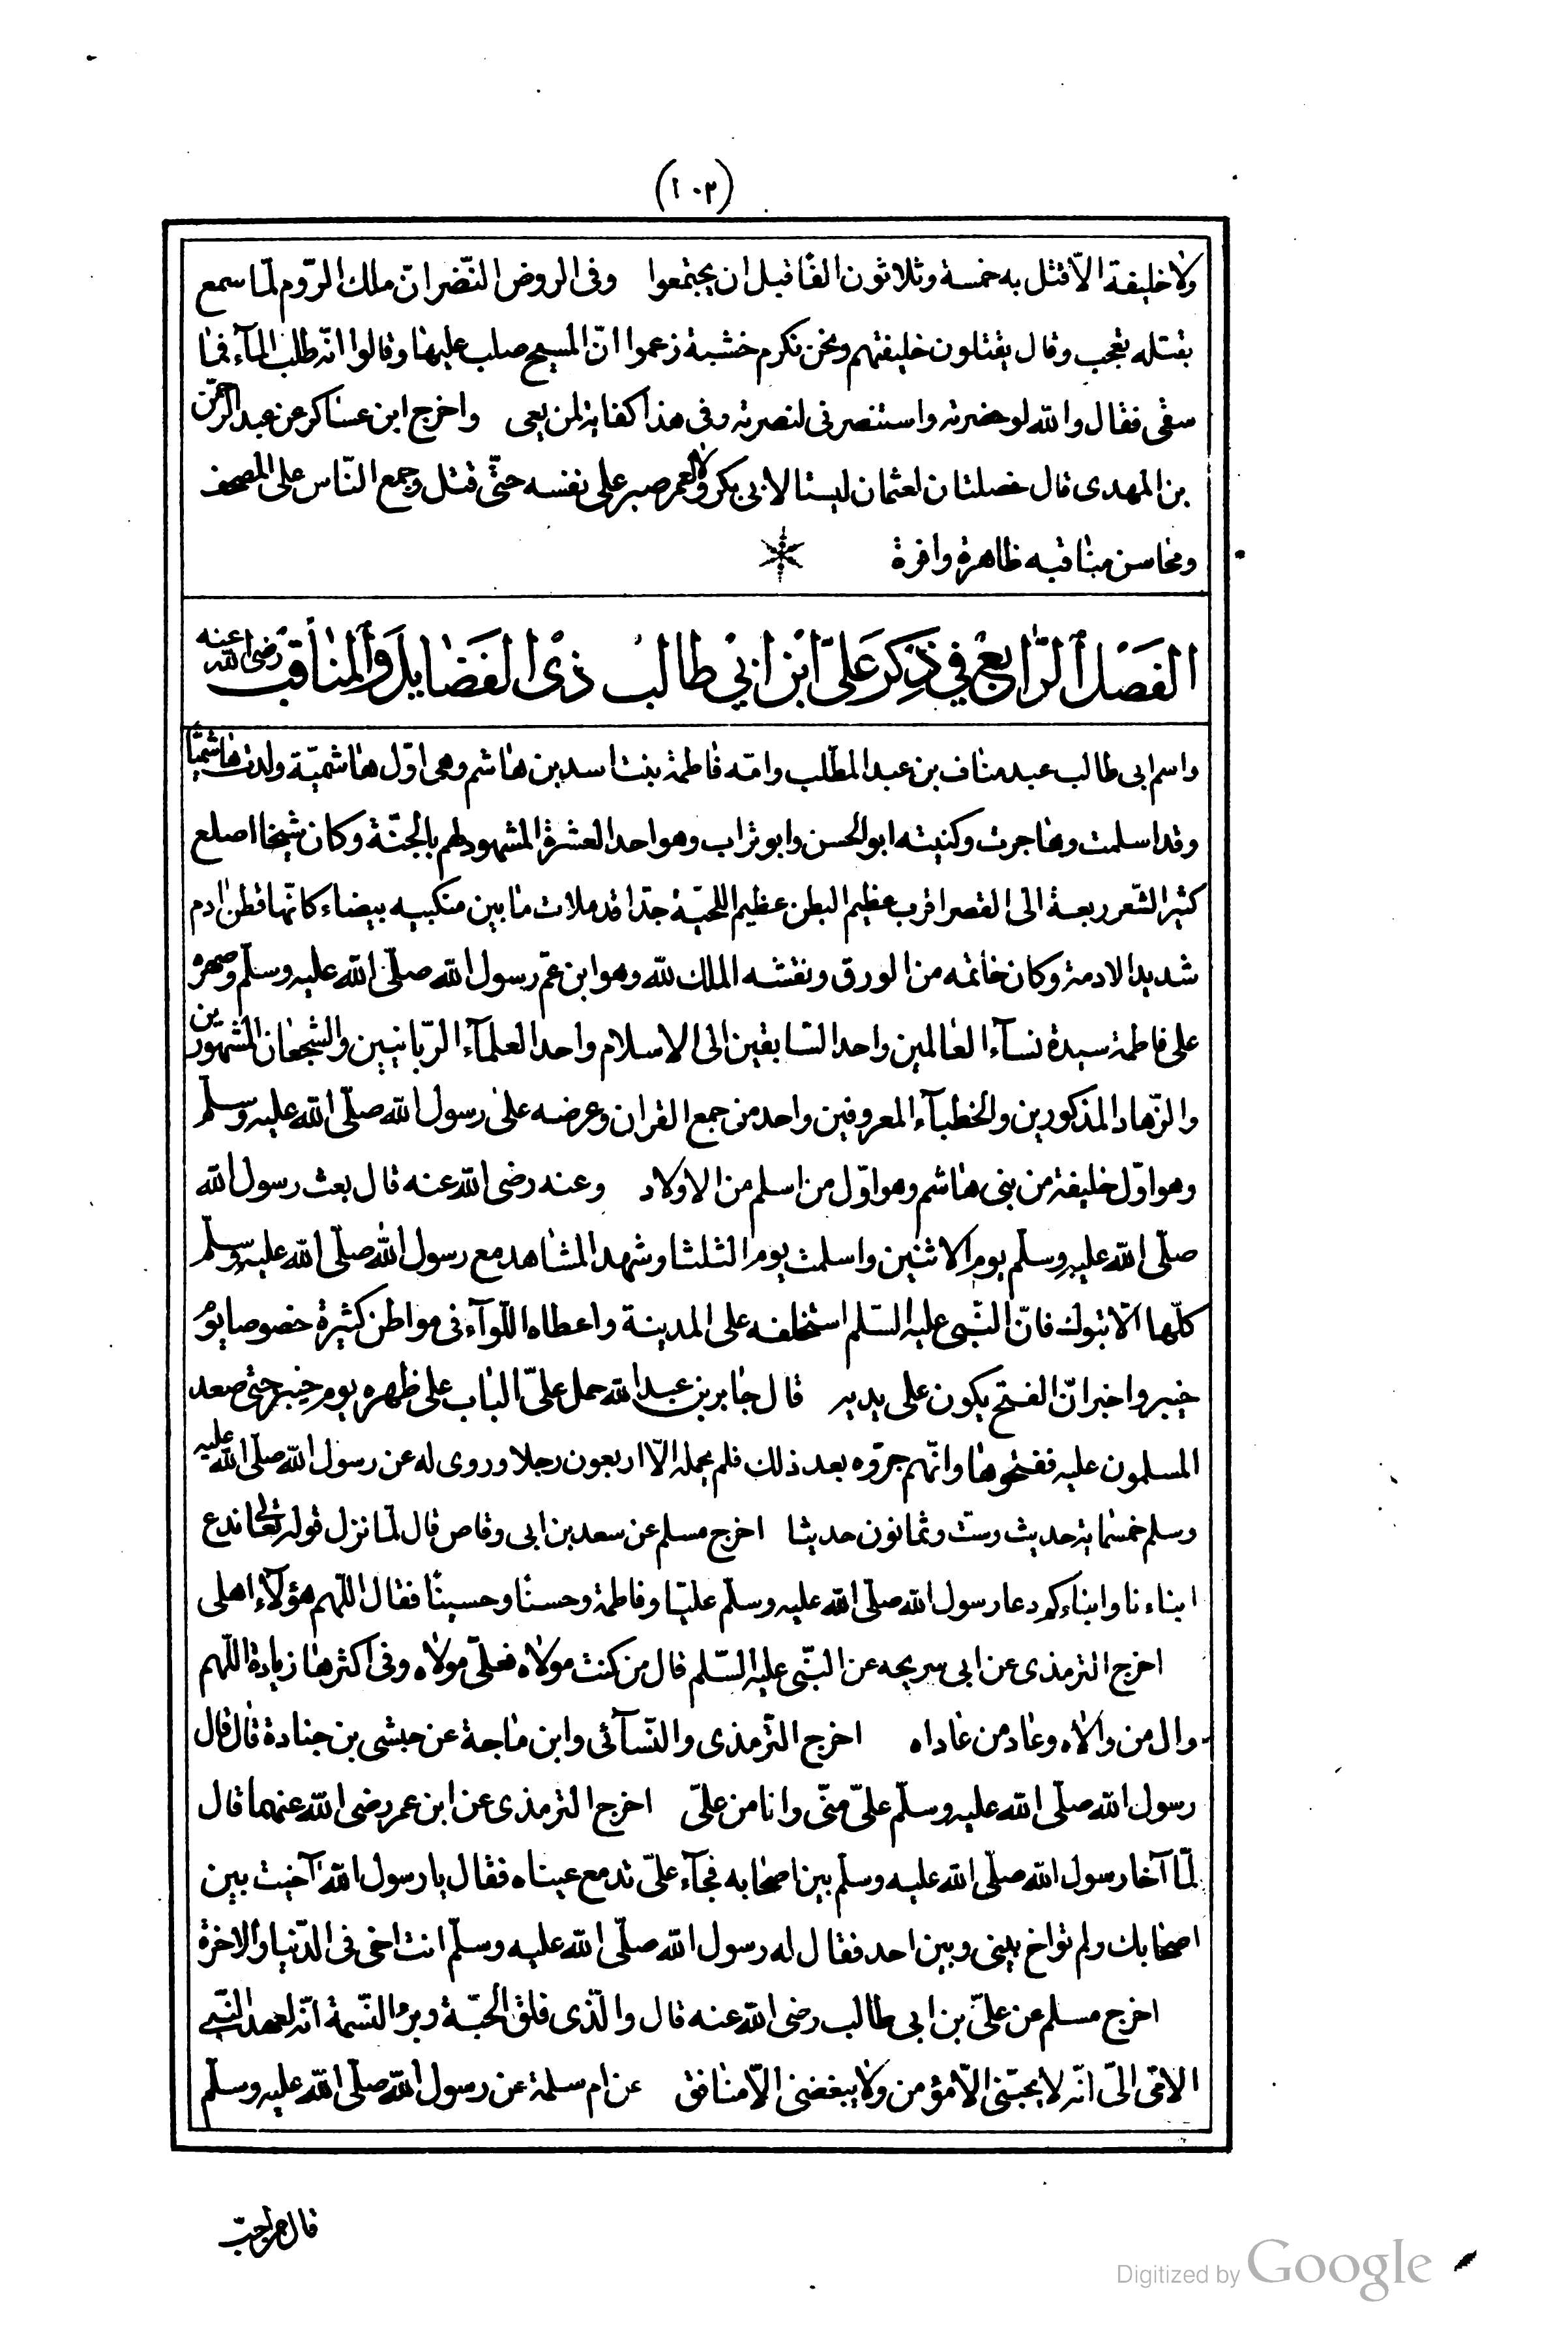 (١٠٢)
ولا خليفة الّا قتل به خمسة وثلاثون الفًا قبل ان يجتمعوا وفى الروض النّضر انّ ملك الرّوم لمّا سمع
بقتله تعجب وقال يقتلون خليفتهم ونحن نكرم خشبة زعموا انّ المسيح صلب عليها وقالوا انّه طلب المآء فما
سقى فقال والله لو حضرته واستنصرنى لنصرته وفى هذا كفاية لمن يعى واخرج ابن عساكر عن عبد الرّحمن
بن المهدى قال خصلتان لعثمان ليستا لابى بكر ولا لعمر صبر على نفسه حتّى قتل وجمع النّاس على المصحف
ومحاسن مناقبه ظاهرة وافرة
الفَصْل الرّابِعُ في ذِكرَ عَلىّ ابْنِ ابْي طالبُ ذىْ الفَضايلَ وَالمناقبْ رضى الله عنه
واسم ابى طالب عبد مناف بن عبد المطّلب وامّه فاطمة بنت اسد بن هاشم وهى اوّل هاشميّة ولدت هاشميًّا
وقد اسلمت وهاجرت وكنيته ابو الحسن وابو تراب وهو احد العشرة المشهود لهم بالجنّة وكان شيخا اصلع
كثير الشّعر ربعة الى القصر اقرب عظيم البطن عظيم اللّحيّة جدّا قد ملات ما بين منكبيه بيضاء كانّها قطن ادم
شديد الادمة وكان خاتمه من الورق ونقشه الملك لله وهو ابن عمّ رسول الله صلّى الله عليه وسلّم وصهره
على فاطمة سيدة نسآء العالمين واحد السّابقين الى الاسلام واحد العلمآء الرّبانيين والشّجعان المشهورين
والزّهاد المذكورين والخطبآء المعروفين واحد من جمع القران وعرضه على رسول الله صلّى الله عليه وسلّم
وهو اوّل خليفة من بنى هاشم وهو اوّل من اسلم من الاولاد وعنه رضى الله عنه قال بعث رسول الله
صلّى الله عليه وسلّم يوم الاثنين واسلمت يوم الثلثا وشهد المشاهد مع رسول الله صلّى الله عليه وسلّم
كلّها الّا تبوك فانّ النّبى عليه السّلم استخلفه على المدينة واعطاه اللّوآء فى مواطن كثيرة خصوصا يومُ
خيبر واخبر انّ الفتح يكون على يديه قال جابر بن عبد الله حمل علىّ الباب على ظهره يوم خيبر حتى صعد
المسلمون عليه ففتحوها وانّهم جرّوه بعد ذلك فلم يحمله الّا اربعون رجلا وروى له عن رسول الله صلّى الله عليه
وسلم خمسماية حديث وستّ وثمانون حديثا اخرج مسلم عن سعد بن ابى وقاص قال لمّا نزل قوله تعالى ندع
ابناءنا وابناءكم دعا رسول الله صلّى الله عليه وسلّم عليّا وفاطمة وحسنًا وحسينًا فقال اللّهم هؤلآء اهلى
اخرج الترمذى عن ابى سريحه عن النّبى عليه السّلم قال من كنت مولاه فعلّى مولاه وفى اكثرها زيادة اللّهم
وال من والاه وعاد من عاداه اخرج التّرمذى والنّسآئى وابن ماجة عن حبشى بن جنادة قال قال
رسول الله صلّى الله عليه وسلّم علىّ منّى وانا من علىّ اخرج الترمذى عن ابن عمر رضى الله عنهما قال
لمّا آخا رسول الله صلّى الله عليه وسلّم بين اصحابه فجآء علىّ تدمع عيناه فقال يا رسول الله آخيت بين
اصحابك ولم تواخ بينى وبين احد فقال له رسول الله صلّى الله عليه وسلّم انت اخى فى الدّنيا والاخرة
اخرج مسلم عن علىّ بن ابى طالب رضى الله عنه قال والّذى فلق الحبّة وبرء النّسمة انّه لعهد النّبى
الاقى الىّ انّه لا يحبّنى الّا مؤمن ولا يبغضنى الّا منافق عن ام سلمة عن رسول الله صلّى الله عليه وسلّم
قال من احبّ
Digitized by Google